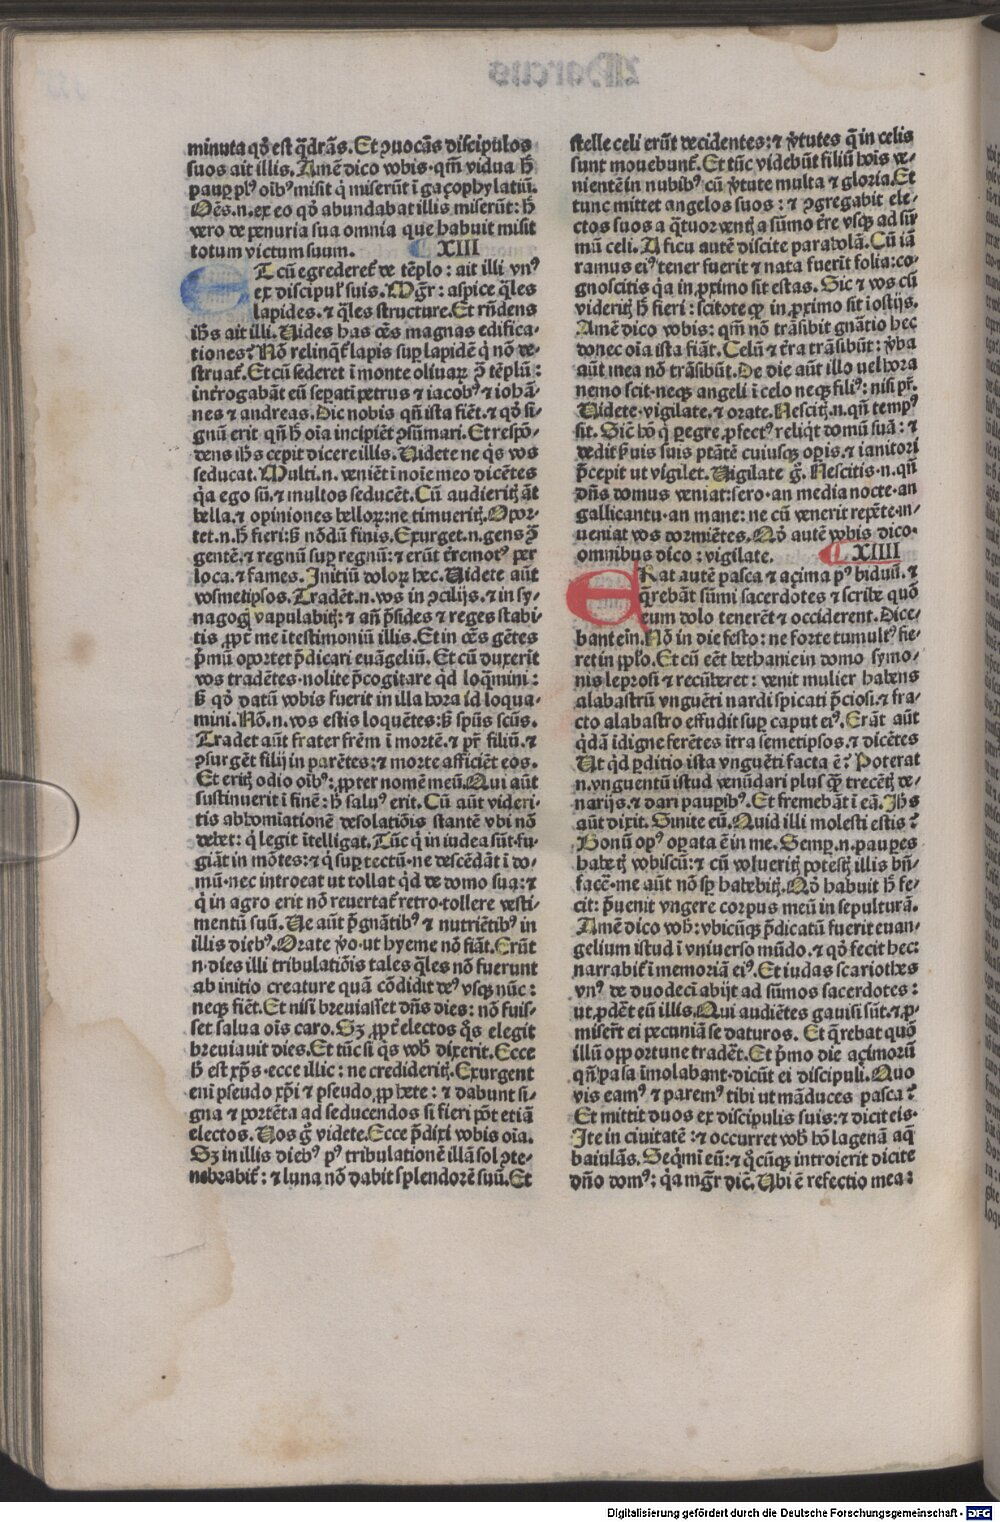 minuta qḋ est q̄drãs. Et ꝯuocãs discipulos
suos ait illis. Amẽ dico vobis. qm̃ vidua h̄
paup̲ pl' oĩbꝰ misit q̇ miserũt ĩ gaçophylatiũ.
Oẽs .n. ex eo qḋ abundabat illis miserũt: h̄
vero de penuria sua omnia que habuit misit
totum victum suum. XIII
Et cũ egrederet̃ de tẽplo: ait illi vnꝰ
ex discipul' suis. Mg̃r: aspice q̃les
lapides. ⁊ q̃les structure. Et rñdens
ih̃s ait illi. Uides has oẽs magnas edifica-
tiones? Nõ relinq̃t̃ lapis sup̲ lapidẽ q̇ nõ de-
struat̃. Et cũ sederet ĩ monte oliuaꝝ ꝯ̃ tẽplũ:
int̃rogabãt eũ sep̲ati petrus ⁊ iacobꝰ ⁊ iohã-
nes ⁊ andreas. Dic nobis qñ ista fiẽt. ⁊ qḋ si-
gnũ erit qñ h̄ oĩa incipiẽt ꝯsũmari. Et respõ-
dens ih̃s cepit dicere illis. Uidete ne q̇s vos
seducat. Multi .n. veniẽt ĩ noĩe meo dicẽtes
q̇a ego sũ. ⁊ multos seducẽt. Cũ audieritꝭ ãt
bella. ⁊ opiniones belloꝝ: ne timueritꝭ. Opor-
tet .n. h̄ fieri: ſꝫ nõdũ finis. Exurget .n. gens ꝯ̃
gentẽ. ⁊ regnũ sup̲ regnũ: ⁊ erũt t̃remotꝰ per
loca. ⁊ fames. Initiũ doloꝝ hec. Uidete aũt
vosmetipsos. Tradẽt .n. vos in ꝯcilijs. ⁊ in sy-
nagogꝭ vapulabitꝭ: ⁊ añ p̃sides ⁊ reges stabi-
tis ꝓpt̃ me ĩ testimoniũ illis. Et in oẽs gẽtes
p̃mũ oportet p̃dicari euãgeliũ. Et cũ duxerĩt
vos tradẽtes. nolite p̃cogitare q̇d loq̃mini:
ſꝫ qḋ datũ vobis fuerit in illa hora id loqua-
mini. Nõ .n. vos estis loquẽtes: ſꝫ sp̃us scũs.
Tradet aũt frater frẽm ĩ mortẽ. ⁊ pr̃ filiũ. ⁊
ꝯsurgẽt filij in parẽtes: ⁊ morte afficiẽt eos.
Et eritꝭ odio oĩbꝰ: ꝓpter nomẽ meũ. Qui aũt
sustinuerit ĩ finẽ: h̄ saluꝰ erit. Cũ aũt videri-
tis abhomiationẽ desolatiõis stantẽ vbi nõ
debet: q̇ legit ĩtelligat. Tũc q̇ in iudea sũt. fu-
giãt in mõtes: ⁊ q̇ sup̲ tectũ. ne descẽdãt ĩ do-
mũ. nec introeat ut tollat q̇d de domo sua: ⁊
q̇ in agro erit nõ reuertat̃ retro. tollere vesti-
mentũ suũ. Ue aũt p̃gnãtibꝰ ⁊ nutriẽtibꝰ in
illis diebꝰ. Orate ṽo. ut hyeme nõ fiãt. Erũt
n. dies illi tribulatiõis tales q̃les nõ fuerunt
ab initio creature quã cõdidit deꝰ vsqꝫ nũc:
neqꝫ fiẽt. Et nisi breuiasset dñs dies: nõ fuis-
set salua oĩs caro. Sꝫ ꝓpt̃ electos q̃s elegit
breuiauit dies. Et tũc si q̇s vob̃ dixerit. Ecce
h̄ est xp̃s. ecce illic: ne credideritꝭ. Exurgent
enĩ pseudo xp̃i ⁊ pseudo ꝓphete: ⁊ dabunt si-
gna ⁊ portẽta ad seducendos si fieri põt etiã
electos. Uos g̃ videte. Ecce p̃dixi vobis oĩa.
Sꝫ in illis diebꝰ pꝰ tribulationẽ illã sol ꝯte-
nebrabit̃: ⁊ luna nõ dabit splendorẽ suũ. Et
stelle celi erũt decidentes: ⁊ ṽtutes q̃ in celis
sunt mouebunt̃. Et tũc videbũt filiũ hoĩs ve-
nientẽ in nubibꝰ cũ ṽtute multa ⁊ gloria. Et
tunc mittet angelos suos: ⁊ ꝯgregabit ele-
ctos suos a q̃tuor ventꝭ a sũmo t̃re vsqꝫ ad sũ-
mũ celi. A ficu autẽ discite parabolã. Cũ iã
ramus eiꝰ tener fuerit ⁊ nata fuerĩt folia: co-
gnoscitis q̇a in ꝓximo sit estas. Sic ⁊ vos cũ
videritꝭ h̄ fieri: scitote qꝫ in ꝓximo sit ĩ ostijs.
Amẽ dico vobis: qm̃ nõ trãsibit gñatio hec
donec oĩa ista fiãt. Celũ ⁊ t̃ra trãsibũt: ṽba
aũt mea nõ trãsibũt. De die aũt illo vel hora
nemo scit. neqꝫ angeli ĩ celo neqꝫ filiꝰ: nisi pr̃.
Uidete. vigilate. ⁊ orate. Nescitꝭ .n. qñ tempꝰ
sit. Sic̃ hõ q̇ p̲egre ꝓfectꝰ reliq̇t domũ suã: ⁊
dedit ẜuis suis ptãtẽ cuiusqꝫ op̲is. ⁊ ianitori
p̃cepit ut vigilet. Uigilate g̃. Nescitis .n. qñ
dñs domus veniat: sero. an media nocte. an
gallicantu. an mane: ne cũ venerit repẽte. in-
ueniat vos dormiẽtes. Qḋ autẽ vobis dico.
omnibus dico: vigilate. XIIII
Erat autẽ pasca ⁊ açima pꝰ biduũ. ⁊
q̃rebãt sũmi sacerdotes ⁊ scribe quõ
eum dolo tenerẽt ⁊ occiderent. Dice-
bant eĩm. Nõ in die festo: ne forte tumultꝰ fie-
ret in pp̃lo. Et cũ eẽt bethanie in domo symo-
nis leprosi ⁊ recũberet: venit mulier habens
alabastrũ vnguẽti nardi spicati p̃ciosi. ⁊ fra-
cto alabastro effudit sup̲ caput eiꝰ. Erãt aũt
q̇dã ĩdigne ferẽtes ĩtra semetipsos. ⁊ dicẽtes
Ut q̇d p̲ditio ista vnguẽti facta ẽ? Poterat
.n. vnguentũ istud venũdari plus q̃ꝫ trecẽtꝭ de-
narijs. ⁊ dari paup̲ibꝰ. Et fremebãt ĩ eã. Ih̃s
aũt dixit. Sinite eã. Quid illi molesti estis?
Bonũ opꝰ op̲ata ẽ in me. Semp̲ .n. paup̲es
habetꝭ vobiscũ: ⁊ cũ volueritꝭ potestꝭ illis bñ-
facẽ. me aũt nõ sp̲ habebitꝭ. Qḋ habuit h̄ fe-
cit: p̃uenit vngere corpus meũ in sepulturã.
Amẽ dico vob̃: vbicũqꝫ p̃dicatũ fuerit euan-
gelium istud ĩ vniuerso mũdo. ⁊ qḋ fecit hec:
narrabit̃ ĩ memoriã eiꝰ. Et iudas scariothes
vnꝰ de duodecĩ abijt ad sũmos sacerdotes:
ut ꝓdẽt eũ illis. Qui audiẽtes gauisi sũt. ⁊ ꝓ-
miser̃t ei pecuniã se daturos. Et q̃rebat quõ
illũ opportune tradẽt. Et p̃mo die açimorũ
qñ pasca ĩmolabant. dicũt ei discipuli. Quo
vis eamꝰ ⁊ paremꝰ tibi ut mãduces pasca?
Et mittit duos ex discipulis suis: ⁊ dicit eis.
Ite in ciuitatẽ: ⁊ occurret vob̃ hõ lagenã aq̃
baiulãs. Seq̇mĩ eũ: ⁊ q̇cũqꝫ introierit dicite
dño domꝰ: q̇a mg̃r dic̃. Ubi ẽ refectio mea:
Digitalisierung gefördert durch die Deutsche Forschungsgemeinschaft - DFG